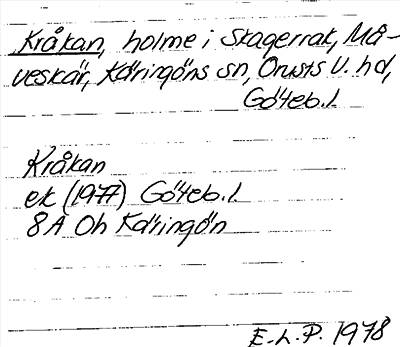 Kråkan, holme i Skagerrak, Må-
veskär, Käringöns sn, Orusts V. hd,
Göteb. l.
Kråkan
ek (1977) Göteb. l.
8A 0h Käringön
E.L.P. 1978